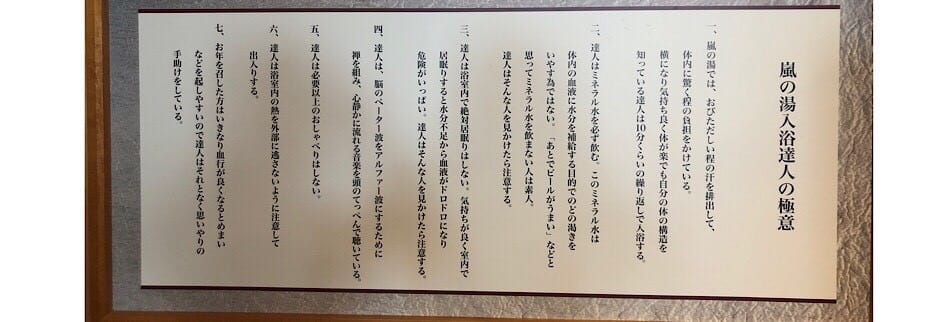 嵐の湯入浴達人の極意
一、嵐の湯では、おびただしい程の汗を排出して、
体内に驚く程の負担をかけている。
横になり気持ち良く体が楽でも自分の体の構造を
知っている達人は10分くらいの繰り返しで入浴する。
二、達人はミネラル水を必ず飲む。このミネラル水は
体内の血液に水分を補給する目的でのどの渇きを
いやす為ではない。「あとでビールがうまい」などと
思ってミネラル水を飲まない人は素人。
達人はそんな人を見かけたら注意する。
三、達人は浴室内で絶対居眠りはしない。気持ちが良く室内で
居眠りすると水分不足から血液がドロドロになり
危険がいっぱい。達人はそんな人を見かけたら注意する。
四、達人は、脳のベーター波をアルファー波にするために
禅を組み、心静かに流れる音楽を頭のてっぺんで聴いている。
五、達人は必要以上のおしゃべりはしない。
六、達人は浴室内の熱を外部に逃さないように注意して
出入りする。
七、お年を召した方はいきなり血行が良くなるとめまい
などを起しやすいので達人はそれとなく思いやりの
手助けをしている。